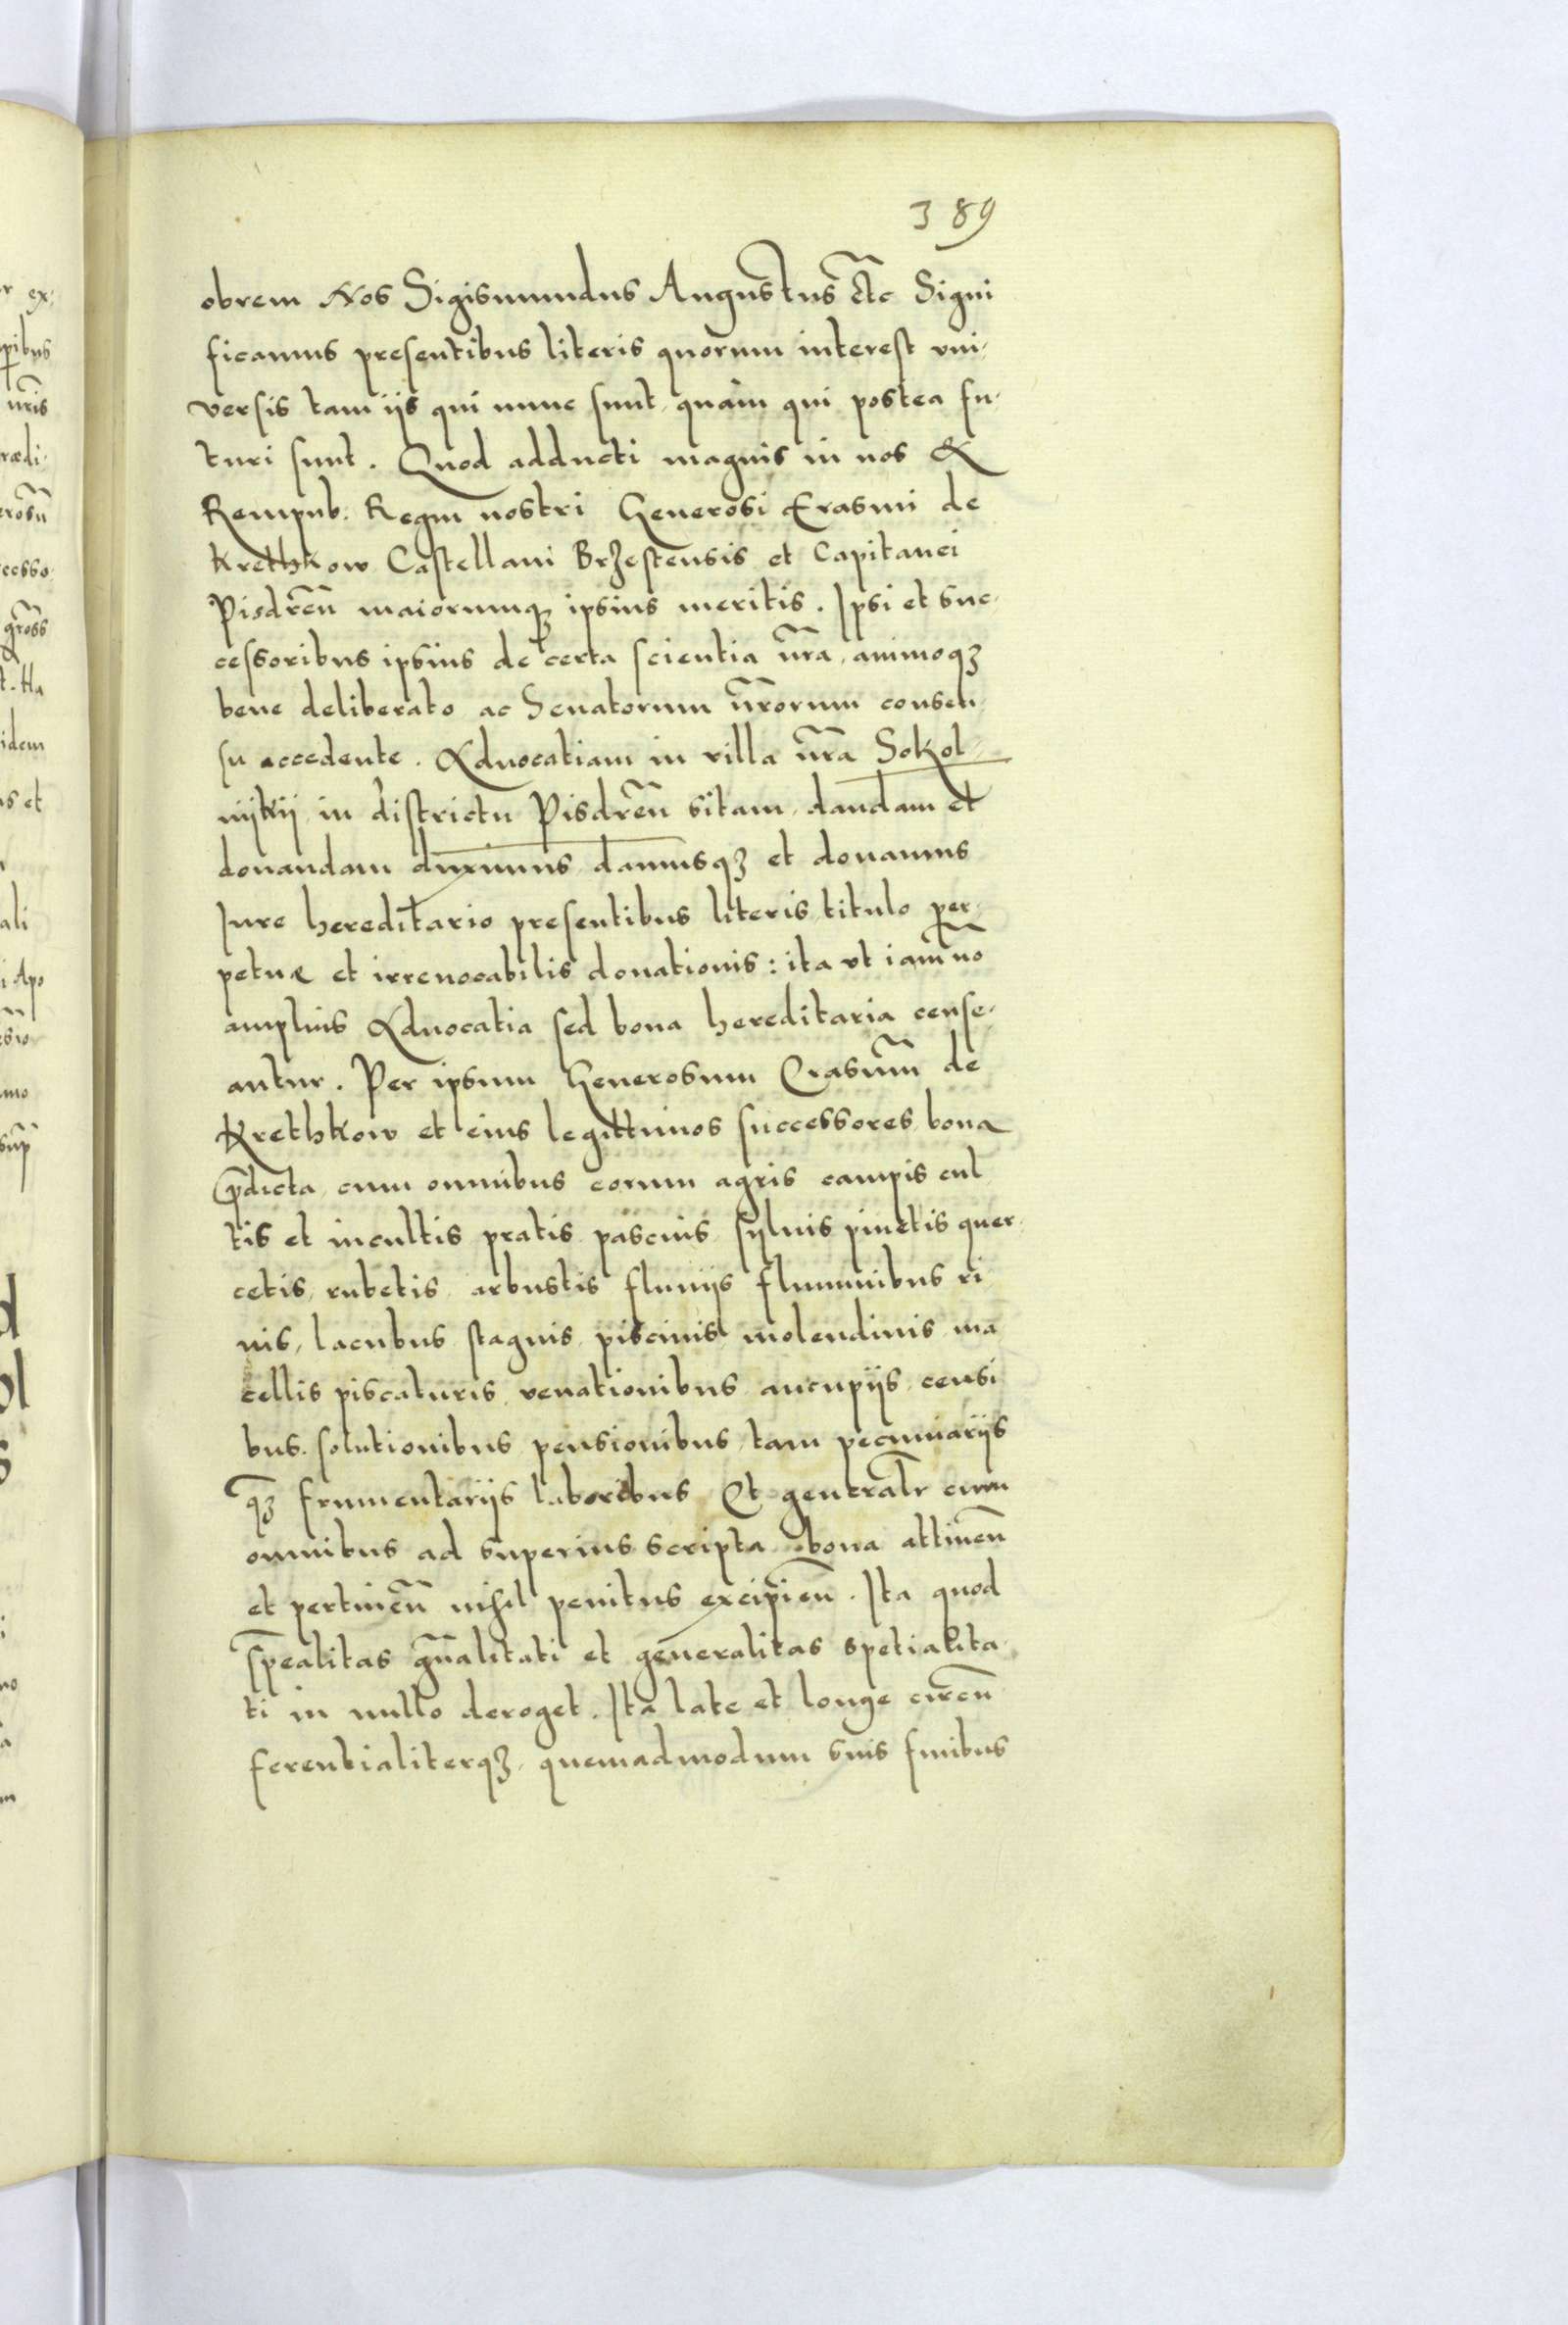 389
obrem Nos Sigismundus Augustus etc Signi
ficamus presentibus literis quorum interest vni-
versis tam iis qui nunc sunt, quàm qui postea fu-
turi sunt. Quod adducti magnis in nos &
Rempub: Regni nostri Generosi Erasmi de
Krethkow Castellani Brzestensis et Capitanei
Pisdreñ maiorumqꝫ ipsius meritis. Ipsi et suc-
cessoribus ipsius de certa scientia nr̃a, animoqꝫ
bene deliberato ac Senatorum nr̃orum consen-
su accedente. Advocatiam in villa nr̃a Sokol-
nijkij in districtu Pisdreñ sitam, dandam et
donandam duximus damusqꝫ et donamus
Iure hereditario presentibus literis titulo per-
petuæ et irreuocabilis donationis: ita vt iam nõ
amplius Aduocatia sed bona hereditaria cense-
antur. Per ipsum Generosum Erasmũ de
Krethkow et eius legittimos successores bona
p̃dicta, cum omnibus eorum agris campis cul
tis et incultis pratis pascuis syluis pinetis quer-
cetis, rubetis arbustis fluuijs fluminibus ri
uis, lacubus stagnis piscinis molendinis ma
cellis piscaturis venationibus aucupijs censi
bus. solutionibus pensionibus, tam pecuniarijs
qꝫ frumentarijs laboribus Et generalr̃ cum
omnibus ad superius scripta bona attineñ
et pertineñ nihil penitus excipieñ. Ita quod
sp̃ealitas gñalitati et generalitas spetialita-
ti in nullo deroget. Ita late et longe circũ
ferentialiterqꝫ, quemadmodum suis finibus